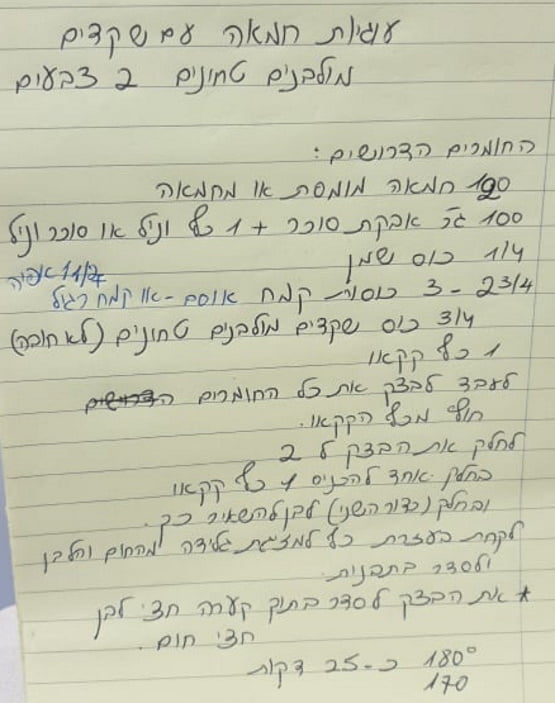 עוגיות חמאה עם שקדים
מולבנים טחונים 2 צבעים
החומרים הדרושים:
190 חמאה מומסת או מחמאה
100 גר׳ אבקת סוכר + 1 כף וניל או סוכר וניל
1/4 כוס שמן
1 1/2 אפיה
2 3/4 - 3 כוסות קמח אוסם - או קמח רגיל
3/4 כוס שקדים מולבנים טחונים (לא חובה)
1 כף קקאו
לעבד לבצק את כל החומרים הדרושים
חוץ מכף הקקאו.
לחלק את הבצק ל 2
בחלק אחד להכניס 1 כף קקאו
ובחלק (כדור השני) לבן להשאיר כך.
לקחת בעזרת כף למזיגת גלידה מהחום והלבן
ולסדר בתבנית.
* את הבצק לסדר בתוך קערה חצי לבן
חצי חום.
180° כ-25 דקות
170